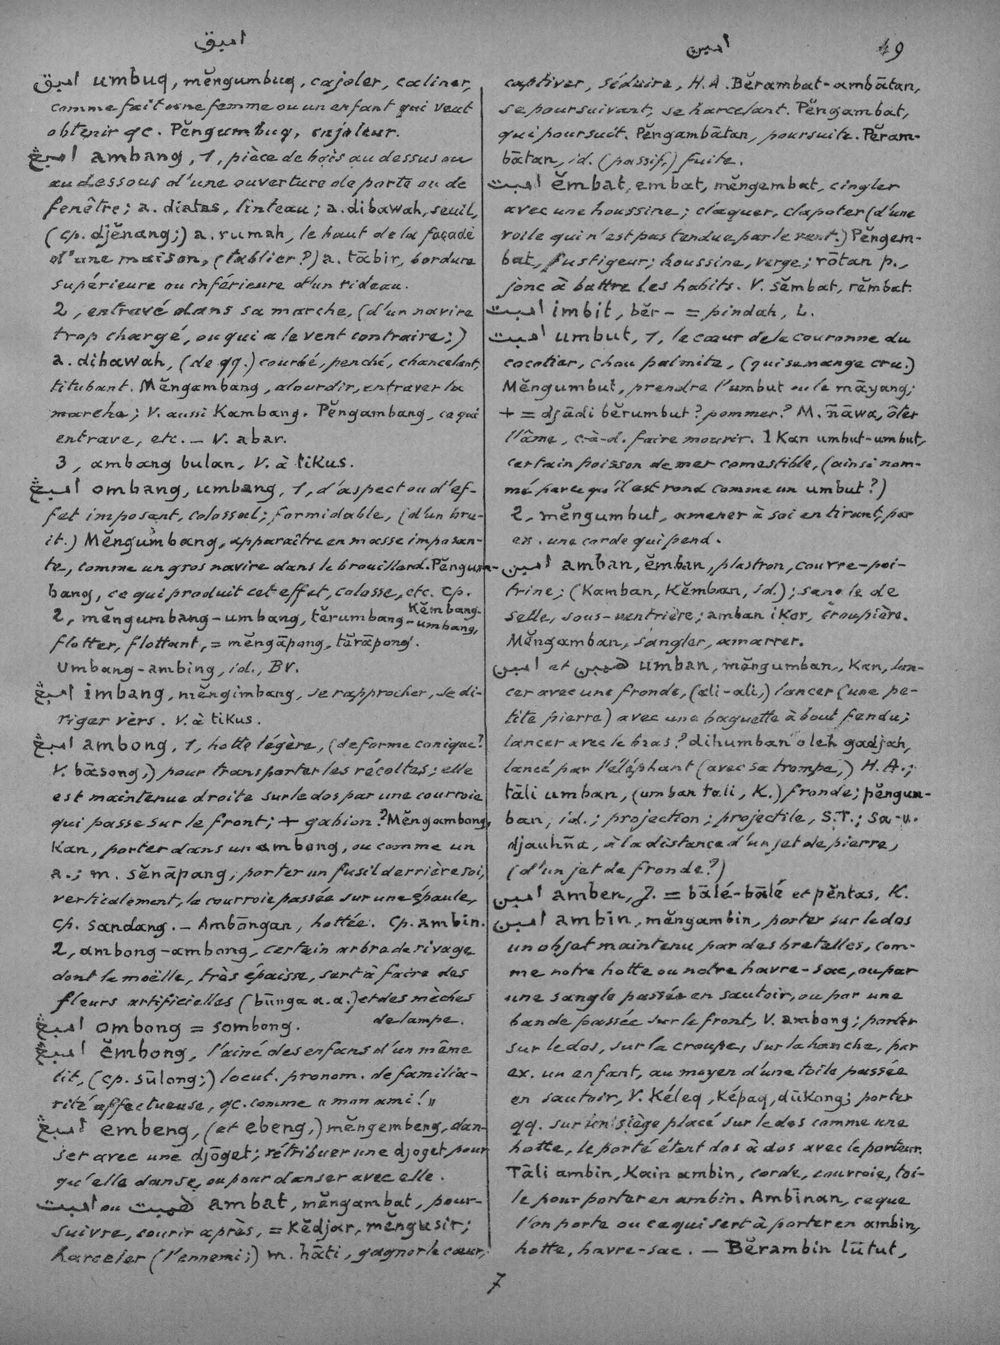 امبق
امبن
49
امبق umbuq, mĕngumbuq, cajoler, caliner,
comme fait une femme ou un enfant qui veut
obtenir qc. Pĕngumbuq, cajoleur.
امبڠ ambang, 1, pièce de bois au dessus ou
au dessous d'une ouverture de porte ou de
fenêtre; a. diatas, linteau; a. dibawah, seuil,
(cp. djĕnang;) a. rumah, le haut de la façade
d'une maison, (tablier?) a. tābir, bordure
supérieure ou inférieure d'un rideau.
2, entravé dans sa marche, (d'un navire
trop chargé, ou qui a le vent contraire;)
a. dibawah, (de qq.) courbé, penché, chancelant,
titubant. Mĕngambang, alourdir, entraver la
marche; V. aussi Kambang. Pĕngambang, ce qui
entrave, etc. — V. abar.
3, ambang bulan, V. à tiKus.
امبڠ ombang, umbang, 1, d'aspect ou d'ef-
fet imposant, colossal; formidable, (d'un bru-
it.) Mĕngumbang, apparaître en masse imposan-
te, comme un gros navire dans le brouillard. Pĕngum-
bang, ce qui produit cet effet, colosse, etc. Cp.
Kĕmbang.
2, mĕngumbang-umbang, tĕrumbang-umbang,
flotter, flottant, = mĕngāpong, tĕrāpong.
Umbang-ambing, id., BV.
امبڠ imbang, mĕngimbang, se rapprocher, se di-
riger vers. V. à tiKus.
امبڠ ambong, 1, hotte légère, (de forme conique?
V. bāsong,) pour transporter les récoltes; elle
est maintenue droite sur le dos par une courroie
qui passe sur le front; + gabion? Mĕngambong,
Kan, porter dans un ambong, ou comme un
a.; m. sĕnāpang, porter un fusil derrière soi,
verticalement, la courroie passée sur une épaule,
cp. sandang. — Ambōngan, hottée. Cp. ambin.
2, ambong-ambong, certain arbre de rivage
dont la moëlle, très épaisse, sert à faire des
fleurs artificielles (būnga a.a.) et des mèches
de lampe.
امبڠ ombong = sombong.
امبڠ ĕmbong, l'aîné des enfans d'un même
lit, (cp. sūlong;) locut. pronom. de familia-
rité affectueuse, qc. comme « mon ami! »
امبڠ embeng, (et ebeng,) mĕngembeng, dan-
ser avec une djōget; rétribuer une djoget pour
qu'elle danse, ou pour danser avec elle.
امبت ou همبت ambat, mĕngambat, pour-
suivre, courir après, = Kĕdjar, mĕngusir;
harceler (l'ennemi;) m. hāti, gagner le cœur,
captiver, séduire, H.A. Bĕrambat-ambātan,
se poursuivant, se harcelant. Pĕngambat,
qui poursuit. Pĕngambātan, poursuite. Pĕram-
bātan, id. (passif,) fuite.
امبت ĕmbat, embat, mĕngembat, cingler
avec une houssine; claquer, clapoter (d'une
voile qui n'est pas tendue par le vent.) Pĕngem-
bat, fustigeur; houssine, verge; rōtan p.,
jonc à battre les habits. V. sĕmbat, rĕmbat.
امبت imbit, bĕr- = pindah, L.
امبت umbut, 1, le cœur de la couronne du
cocotier, chou palmite, (qui se mange cru.)
Mĕngumbut, prendre l'umbut ou le māyang;
+ = djādi bĕrumbut? pommer? M. ñāwa, ôter
l'âme, c-à-d. faire mourir. IKan umbut-umbut,
certain poisson de mer comestible, (ainsi nom-
mé parce qu'il est rond comme un umbut?)
2, mĕngumbut, amener à soi en tirant, par
ex. une corde qui pend.
امبن amban, ĕmban, plastron, couvre-poi-
trine; (Kamban, Kĕmban, id.); sangle de
selle, sous-ventrière; amban iKor, croupière.
Mĕngamban, sangler, amarrer.
امبن et همبن umban, mĕngumban, Kan, lan-
cer avec une fronde, (ali-ali,) lancer (une pe-
tite pierre) avec une baguette à bout fendu;
lancer avec le bras? dihumban oleh gadjah,
lancé par l'éléphant (avec sa trompe,) H.A.;
tāli umban, (umban tali, K.) fronde; pĕngum-
ban, id.; projection; projectile, S.T.; sa-u.
djauhña, à la distance d'un jet de pierre,
(d'un jet de fronde?)
امبن amben, J. = bālé-bālé et pĕntas, K.
امبن ambin, mĕngambin, porter sur le dos
un objet maintenu par des bretelles, com-
me notre hotte ou notre havre-sac, ou par
une sangle passée en sautoir, ou par une
bande passée sur le front, V. ambong; porter
sur le dos, sur la croupe, sur la hanche, par
ex. un enfant, au moyen d'une toile passée
en sautoir, V. Kéleq, Képaq, dūKong; porter
qq. sur un siège placé sur le dos comme une
hotte, le porté étant dos à dos avec le porteur.
Tāli ambin, Kain ambin, corde, courroie, toi-
le pour porter en ambin. Ambīnan, ce que
l'on porte ou ce qui sert à porter en ambin,
hotte, havre-sac. — Bĕrambin lūtut,
7